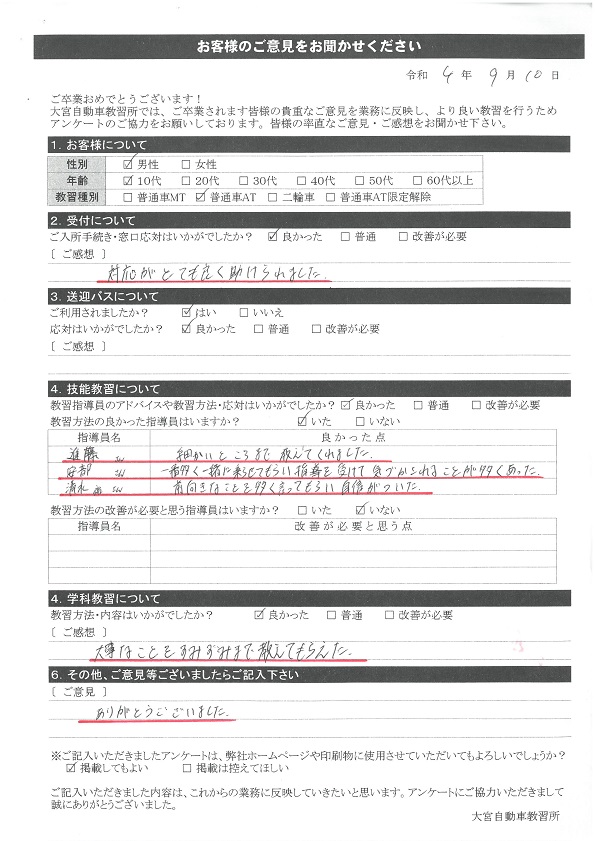 お客様のご意見をお聞かせください
令和 4 年 9 月 10 日
ご卒業おめでとうございます！
大宮自動車教習所では、ご卒業されます皆様の貴重なご意見を業務に反映し、より良い教習を行うため
アンケートのご協力をお願いしております。皆様の率直なご意見・ご感想をお聞かせ下さい。
1. お客様について
性別 ☑男性 □女性
年齢 ☑10代 □20代 □30代 □40代 □50代 □60代以上
教習種別 □普通車MT ☑普通車AT □二輪車 □普通車AT限定解除
2. 受付について
ご入所手続き・窓口応対はいかがでしたか？ ☑良かった □普通 □改善が必要
〔 ご感想 〕
対応がとても良く助けられました。
3. 送迎バスについて
ご利用されましたか？ ☑はい □いいえ
応対はいかがでしたか？ ☑良かった □普通 □改善が必要
〔 ご感想 〕
4. 技能教習について
教習指導員のアドバイスや教習方法・応対はいかがでしたか？ ☑良かった □普通 □改善が必要
教習方法の良かった指導員はいますか？ ☑いた □いない
指導員名 良かった点
進藤 さん 細かいところまで教えてくれました。
安部 さん 一番多く一緒に乗らせてもらい指導を受けて気づかされることが多くあった。
清水 さん 前向きなことを多く言ってもらい自信がついた。
教習方法の改善が必要と思う指導員はいますか？ □いた ☑いない
指導員名 改善が必要と思う点
4. 学科教習について
教習方法・内容はいかがでしたか？ ☑良かった □普通 □改善が必要
〔 ご感想 〕
大事なことをすみずみまで教えてもらえた。
6. その他、ご意見等ございましたらご記入下さい
〔 ご意見 〕
ありがとうございました。
※ご記入いただきましたアンケートは、弊社ホームページや印刷物に使用させていただいてもよろしいでしょうか？
☑掲載してもよい □掲載は控えてほしい
ご記入いただきました内容は、これからの業務に反映していきたいと思います。アンケートにご協力いただきまして
誠にありがとうございました。
大宮自動車教習所